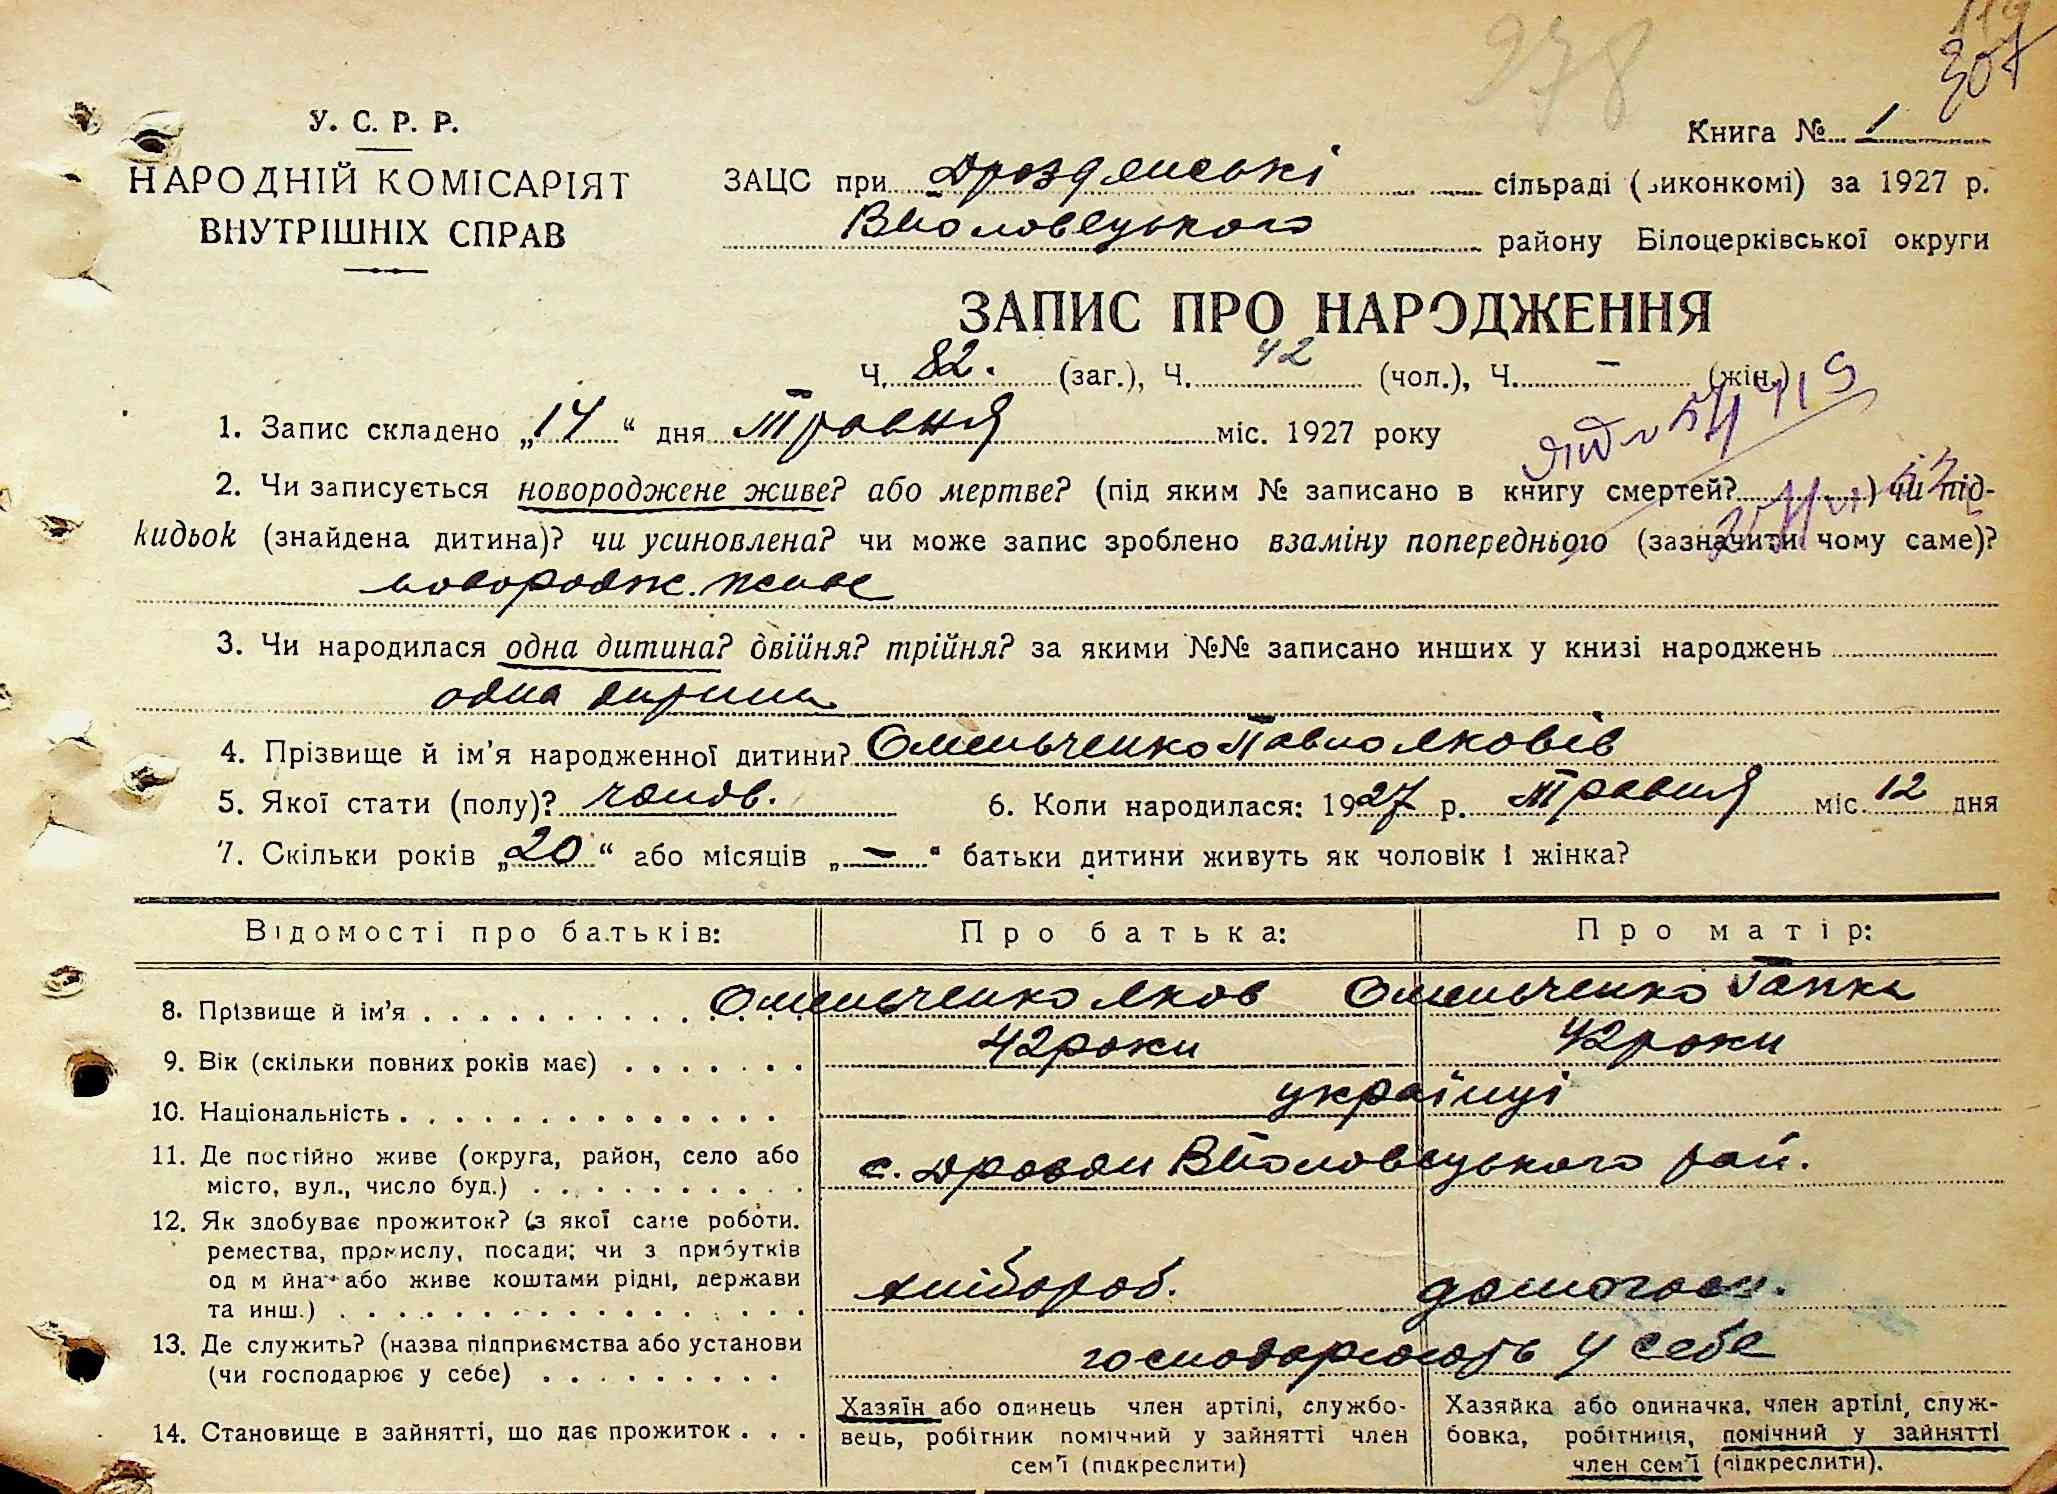 978
307
У. С. Р. Р.
НАРОДНІЙ КОМІСАРІЯТ
ВНУТРІШНІХ СПРАВ
Книга № 1
ЗАЦС при Дроздянські сільраді (виконкомі) за 1927 р.
району Білоцерківської округи
ЗАПИС ПРО НАРОДЖЕННЯ
Ч. 82. (заг.), Ч. 42 (чол.), Ч. – (жін.)
1. Запис складено „14“ дня Травня міс. 1927 року
2. Чи записується новороджене живе? або мертве? (під яким № записано в книгу смертей? ) чи під-
кидьок (знайдена дитина)? чи усиновлена? чи може запис зроблено взаміну попереднього (зазначити чому саме)?
новородж. живе
3. Чи народилася одна дитина? двійня? трійня? за якими №№ записано инших у книзі народжень
одна дитина
4. Прізвище й ім'я народженної дитини? Омельченко Павло Яковів
5. Якої стати (полу)? чолов. 6. Коли народилася: 1927 р. Травня міс. 12 дня
7. Скільки років „20“ або місяців „–“ батьки дитини живуть як чоловік і жінка?
Відомості про батьків: Про батька: Про матір:
8. Прізвище й ім'я Омельченко Яков Омельченко Гапка
9. Вік (скільки повних років має) 42 роки 42 роки
10. Національність українці
11. Де постійно живе (округа, район, село або
місто, вул., число буд.) с. Дрозди рай.
12. Як здобуває прожиток? (з якої саме роботи.
ремества, промислу, посади; чи з прибутків
од майна або живе коштами рідні, держави
та инш.) хлібороб. домогосп.
13. Де служить? (назва підприємства або установи
(чи господарює у себе) господарюють у себе
14. Становище в зайнятті, що дає прожиток
Хазяїн або одинець член артілі, службо-
вець, робітник помічний у зайнятті член
сем'ї (підкреслити)
Хазяйка або одиначка, член артілі, служ-
бовка, робітниця, помічний у зайнятті
член сем'ї (підкреслити).